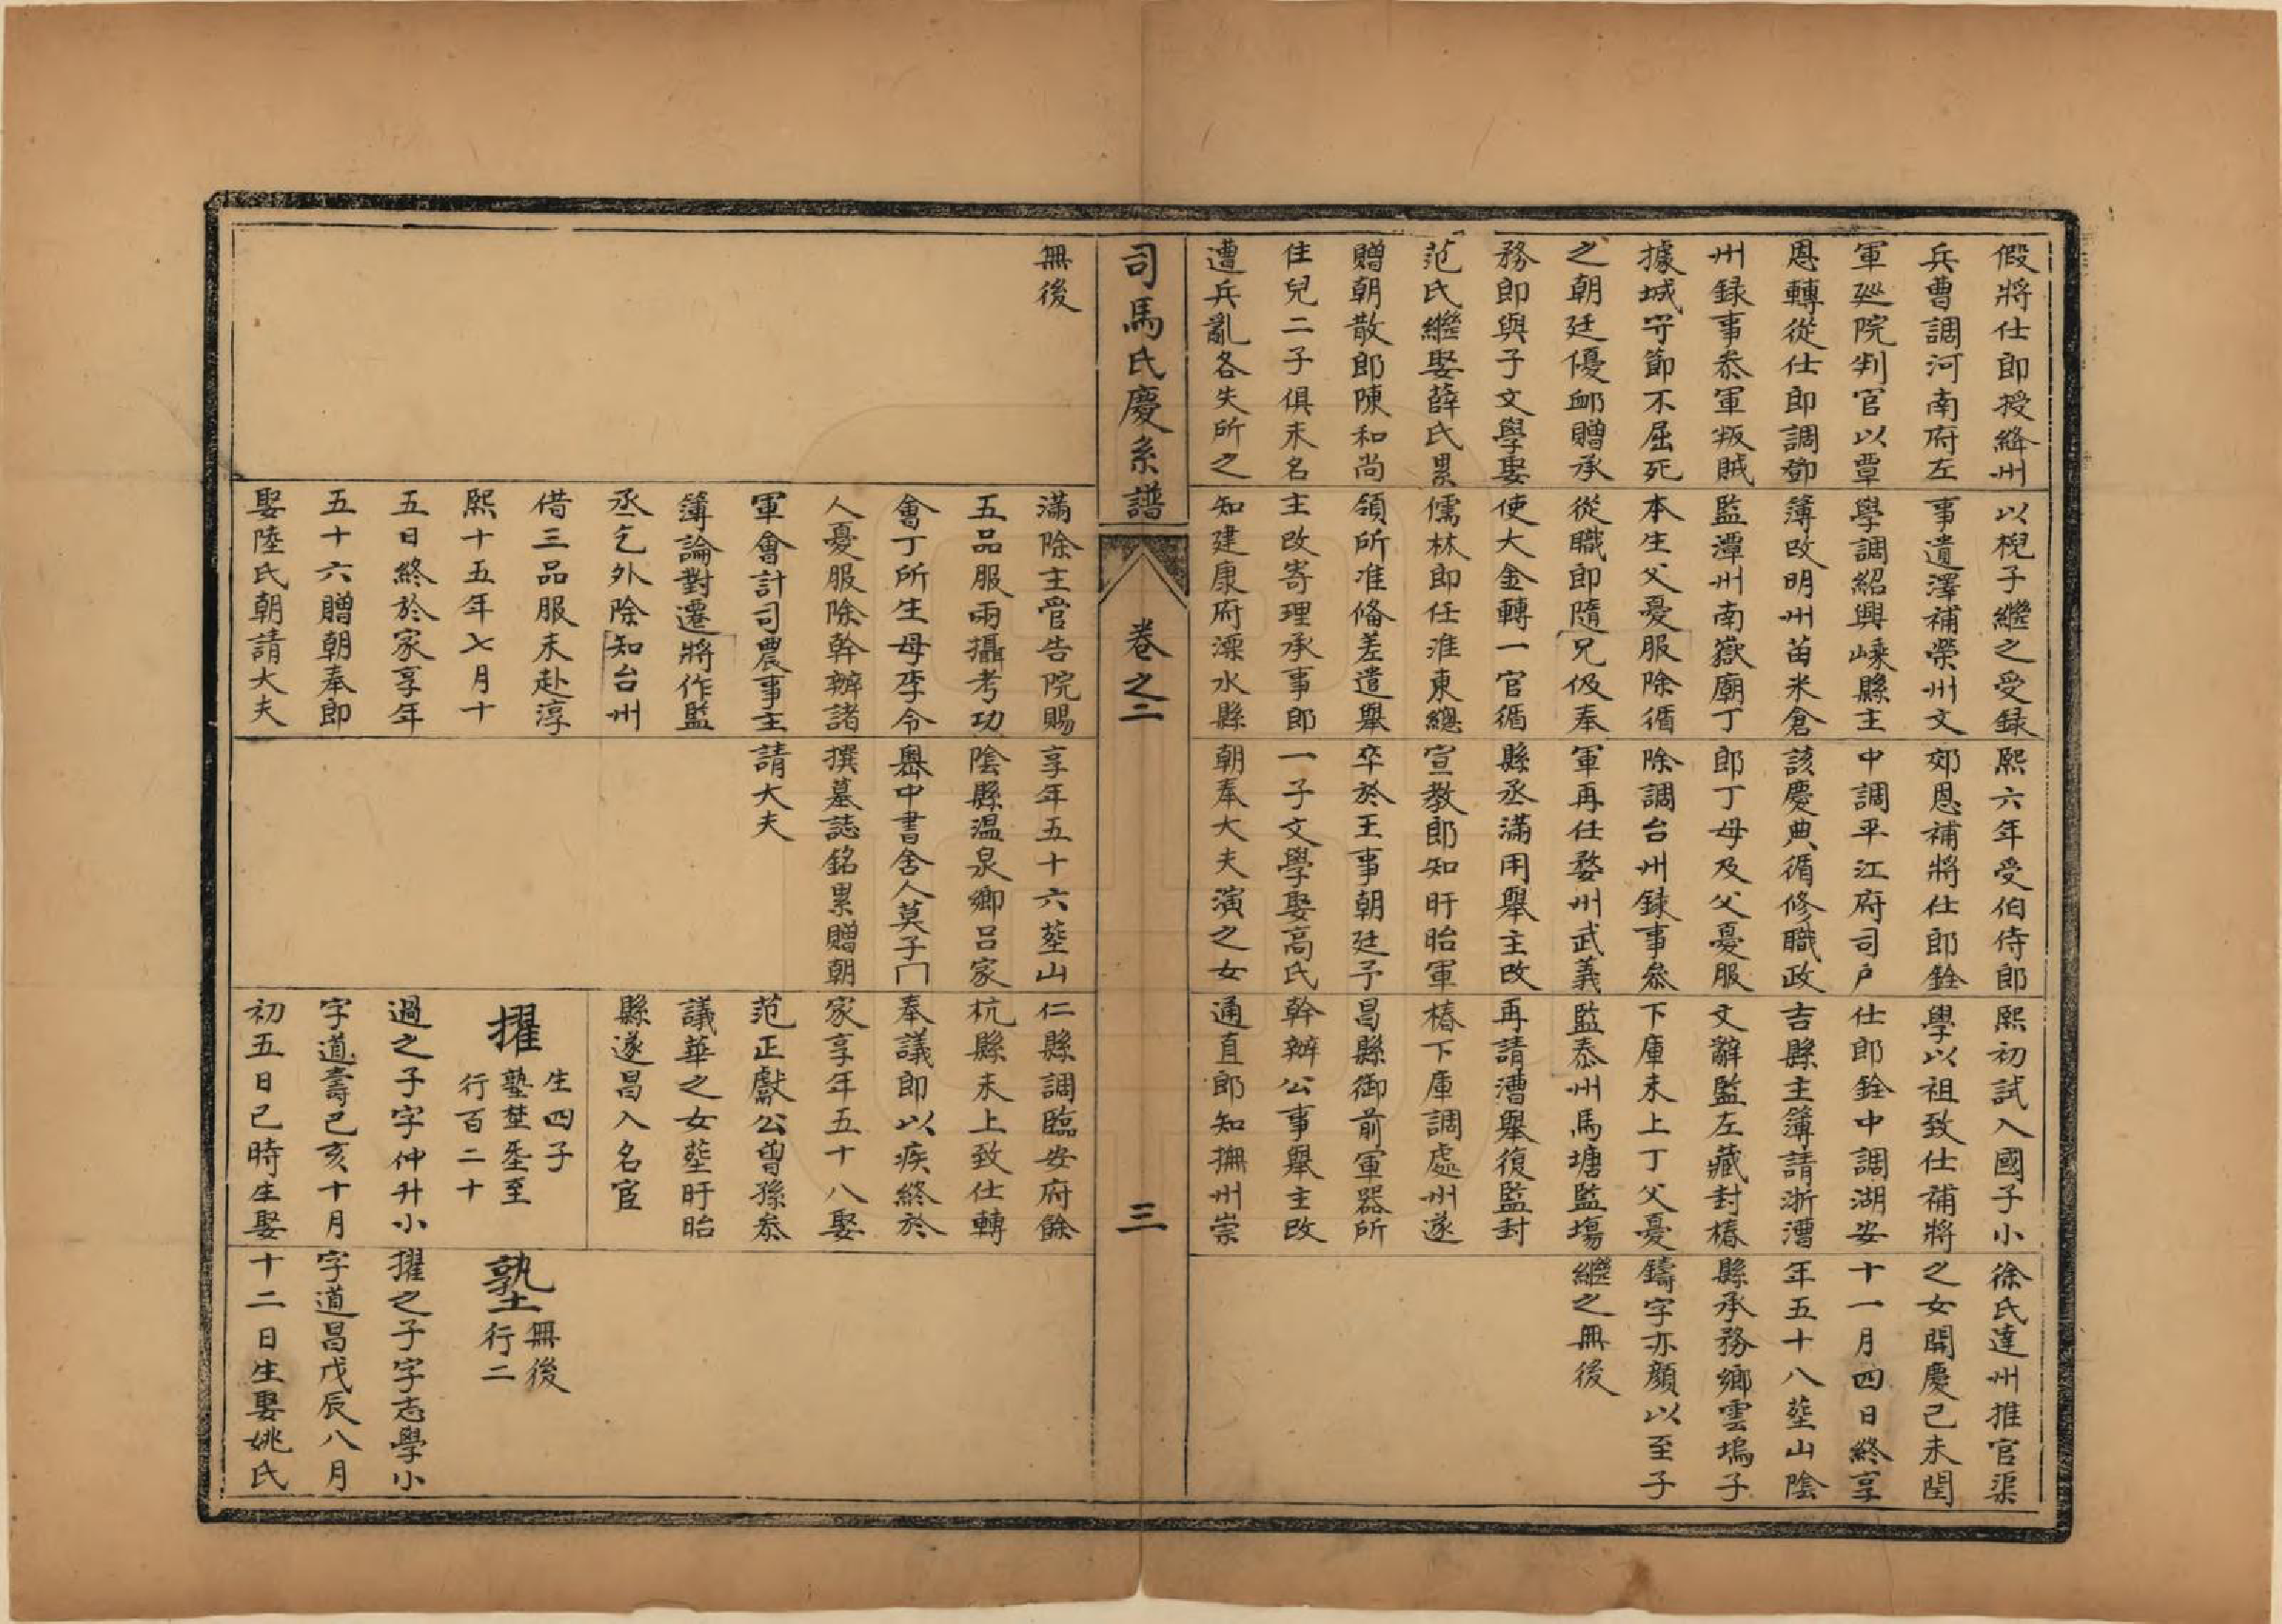 假將仕郎授絳州
兵曹調河南府左
軍廵院判官以覃
恩轉從仕郎調鄧
州録事叅軍叛賊
據城守節不屈死
之朝廷優卹贈承
務郎與子文學娶
范氏繼娶薛氏累
贈朝散郎陳和尚
住兒二子俱未名
遭兵亂各失所之
以棿子繼之受録
事遺澤補榮州文
學調紹興嵊縣主
簿改明州苗米倉
監潭州南嶽廟丁
本生父憂服除循
從職郎隨兄伋奉
使大金轉一官循
儒林郎任淮東總
領所准俻差遣舉
主改寄理承事郎
知建康府溧水縣
熙六年受伯侍郎
郊恩補將仕郎銓
中調平江府司戶
該慶典循修職政
郎丁母及父憂服
除調台州録事叅
軍再任婺州武義
縣丞滿用舉主改
宣教郎知盱眙軍
卒於王事朝廷予
一子文學娶高氏
朝奉大夫演之女
熙初試入國子小
學以祖致仕補將
仕郎銓中調湖安
吉縣主簿請浙漕
文辭監左藏封樁
下庫未上丁父憂
監泰州馬塘監塲
再請漕舉復監封
樁下庫調處州遂
昌縣御前軍器所
幹辦公事舉主改
通直郎知撫州崇
徐氏達州推官渠
之女開慶己未閏
十一月四日終享
年五十八塟山陰
縣承務鄉雲塢子
鑄字亦顔以至子
繼之無後
司馬氏慶系譜
卷之二
三
無後
滿除主管告院賜
五品服兩攝考功
會丁所生母李令
人憂服除幹辦諸
軍會計司農事主
簿論對遷將作監
丞乞外除知台州
借三品服未赴淳
熙十五年七月十
五日終於家享年
五十六贈朝奉郎
娶陸氏朝請大夫
享年五十六塟山
陰縣温泉鄉呂家
嶴中書舍人莫子門
撰墓誌銘累贈朝
請大夫
仁縣調臨安府餘
杭縣未上致仕轉
奉議郎以疾終於
家享年五十八娶
范正獻公曾孫叅
議華之女塟盱眙
縣遂昌入名宦
擢
生四子
塾埜垕至
行百二十
過之子字仲升小
字道壽己亥十月
初五日己時生娶
塾
無後
行二
擢之子字志學小
字道昌戊辰八月
十二日生娶姚氏